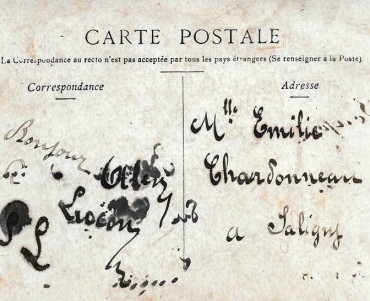 CARTE POSTALE
La Correspondance au recto n'est pas acceptée par tous les pays étrangers (Se renseigner à la Poste).
Correspondance
Adresse
Bonjour
Mlle Emilie
Chardonneau
a Saligny